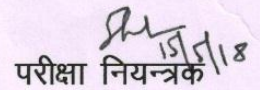 15/5/18
परीक्षा नियन्त्रक